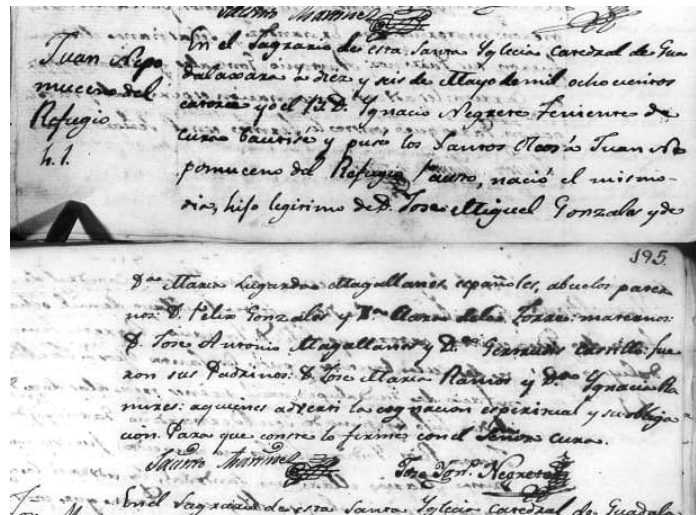 Santos Martinez
Juan Nepo
muceno del
Refugio
h. l.
En el Sagrario de esta Santa Yglecia Catedral de Gua
dalaxara a diez y seis de Mayo de mil ochocientos
catorze yo el D. Ygnacio Negrete Teniente de
cura bautisé y pusé los Santos Oleos á Juan Ne
pomuceno del Refugio nació el mismo
dia, hijo legitimo de D. Jose Miguel Gonzales y de
195.
Da. Maria Lugarda Magallanes españoles, abuelos pater
nos: D. Felix Gonzales y Da. Maria dela Torre: maternos:
D. Jose Antonio Magallanes y Da. Gertrudis Castillo fue
ron sus Padrinos: D. Jose Maria Ramos y Da. Ygnacia Ra
mires: aquienes adverti la cognacion espiritual y su obliga
cion. Para que conste lo firmé con el Señor Cura.
Santos Martinez Jose Ygn. Negrete
En el Sagrario de esta Santa Yglecia Catedral de Guadala